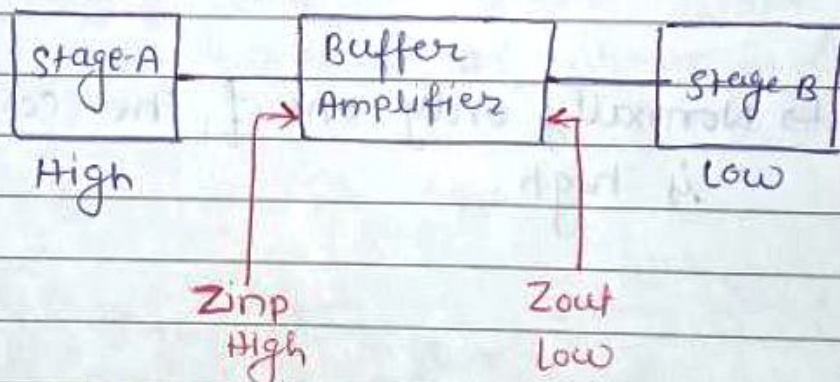 Stage-A
Buffer
Amplifier
Stage B
High
Low
Zinp
High
Zout
Low